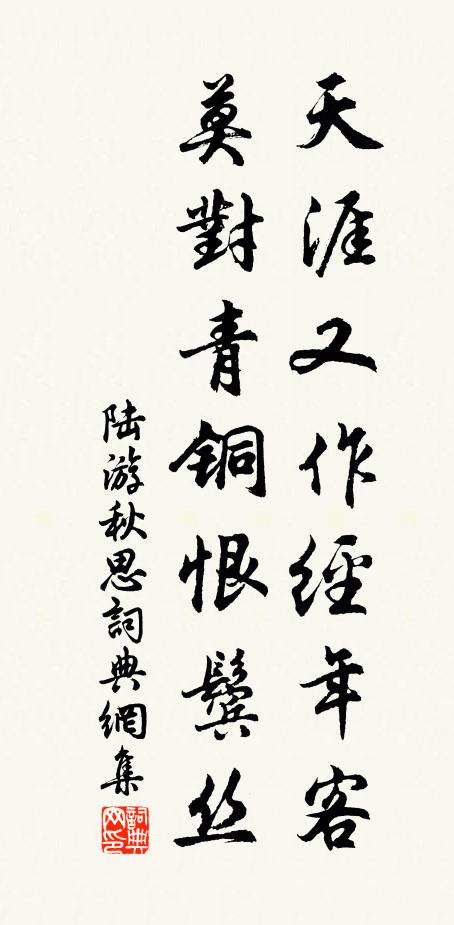 天涯又作經年客
莫對青銅恨鬢丝
陆游秋思詞典網集
詞典網印